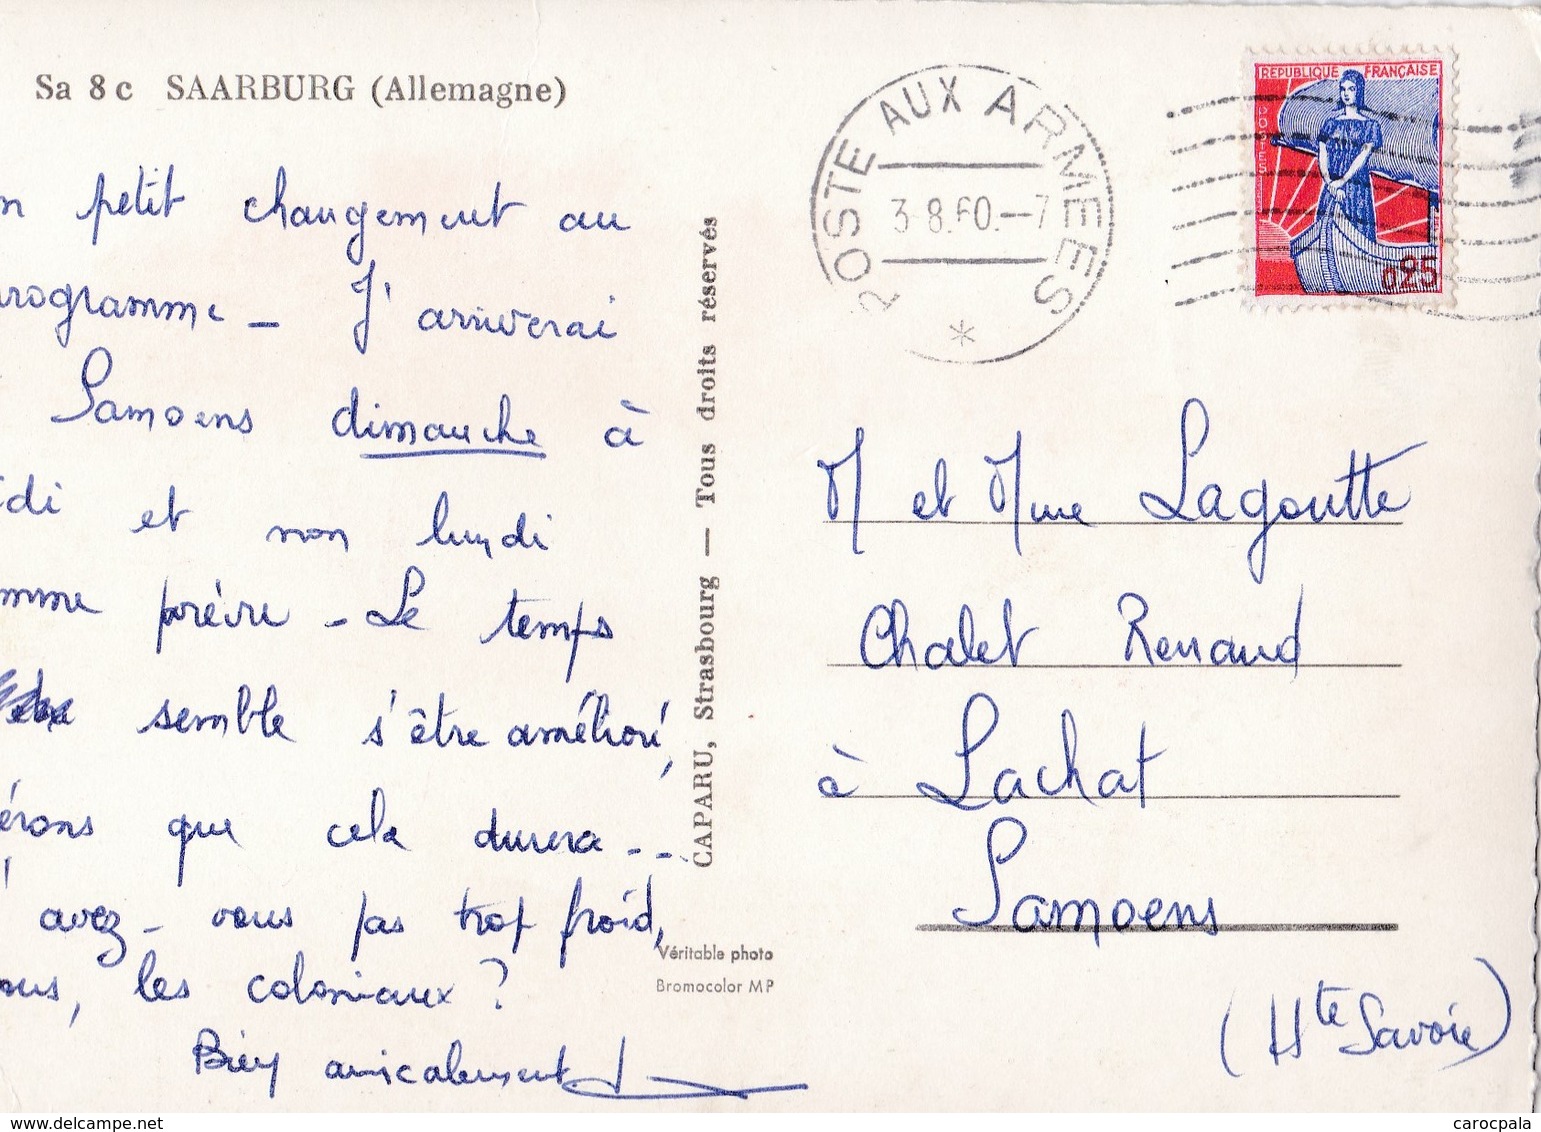 Sa 8 c SAARBURG (Allemagne)
n petit changement au
rogramme – J'arriverai
Samoens dimanche à
idi et non lundi
mme prévu – Le temps
semble s'être amélioré,
érons que cela durera ..
avez-vous pas trop froid,
ous, les coloniaux ?
Bien amicalement
CAPARU, Strasbourg — Tous droits réservés
Véritable photo
Bromocolor MP
POSTE AUX ARMEES
3-8.60.—7
*
REPUBLIQUE FRANÇAISE
POSTES
0,25
M et Mme Lagoutte
Chalet Renaud
à Lachat
Samoens
(Hte Savoie)
delcampe.net
carocpala